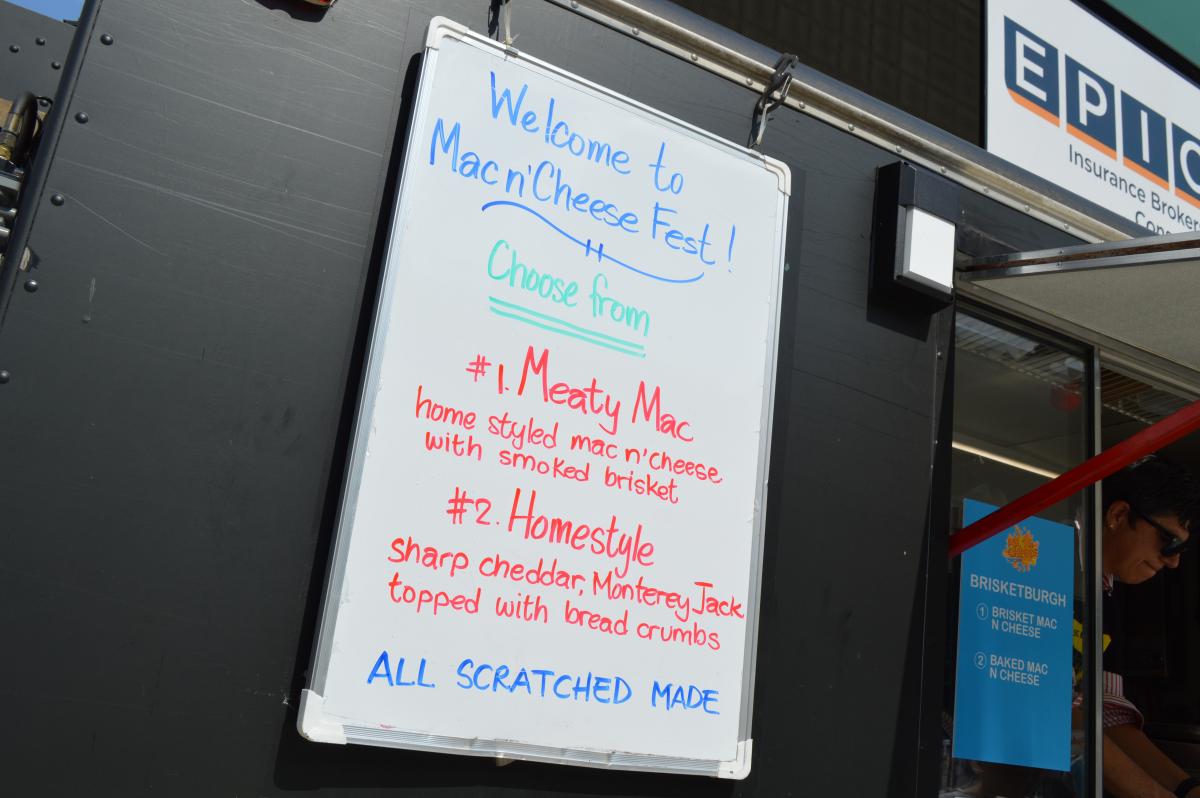 Welcome to
Mac n' Cheese Fest!
Choose from
#1. Meaty Mac
home styled mac n' cheese
with smoked brisket
#2. Homestyle
sharp cheddar, Monterey Jack
topped with bread crumbs
ALL SCRATCHED MADE
EPIC
Insurance Brokers
BRISKETBURGH
1 BRISKET MAC
N CHEESE
2 BAKED MAC
N CHEESE